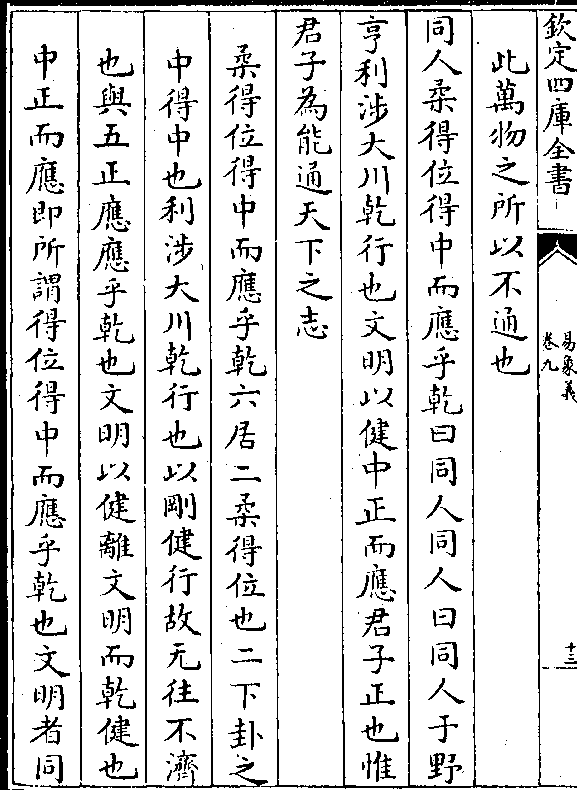 欽定四庫全書
易象義
卷九
十三
此萬物之所以不通也
同人柔得位得中而應乎乾曰同人同人曰同人于野
亨利涉大川乾行也文明以健中正而應君子正也惟
君子為能通天下之志
柔得位得中而應乎乾六居二柔得位也二下卦之
中得中也利涉大川乾行也以剛健行故无往不濟
也與五正應應乎乾也文明以健離文明而乾健也
中正而應即所謂得位得中而應乎乾也文明者同